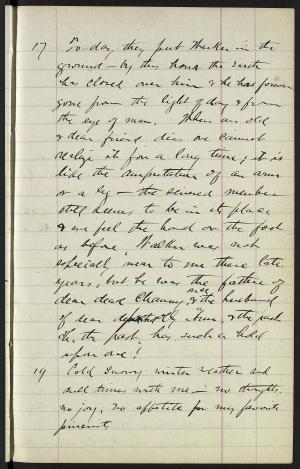 17 To day they put Walker in the
ground – by this hour the Earth
has closed over him & he has forever
gone from the light of day & from
the eye of man. When an old
& dear friend dies we cannot
realize it for a long time; it is
like the amputation of an arm
or a leg – the severed member
still seems to be in its place
& we feel the hand or the foot
as before. Walker was not
especially near to me these late
years, but he was the father of
dear dead Channy, & the husband
of dear Ann, & the past
Oh, the past, has such a hold
upon me!
19 Cold snowy winter weather and
dull times with me – no thoughts,
no joy, no appetite for my favorite
pursuits